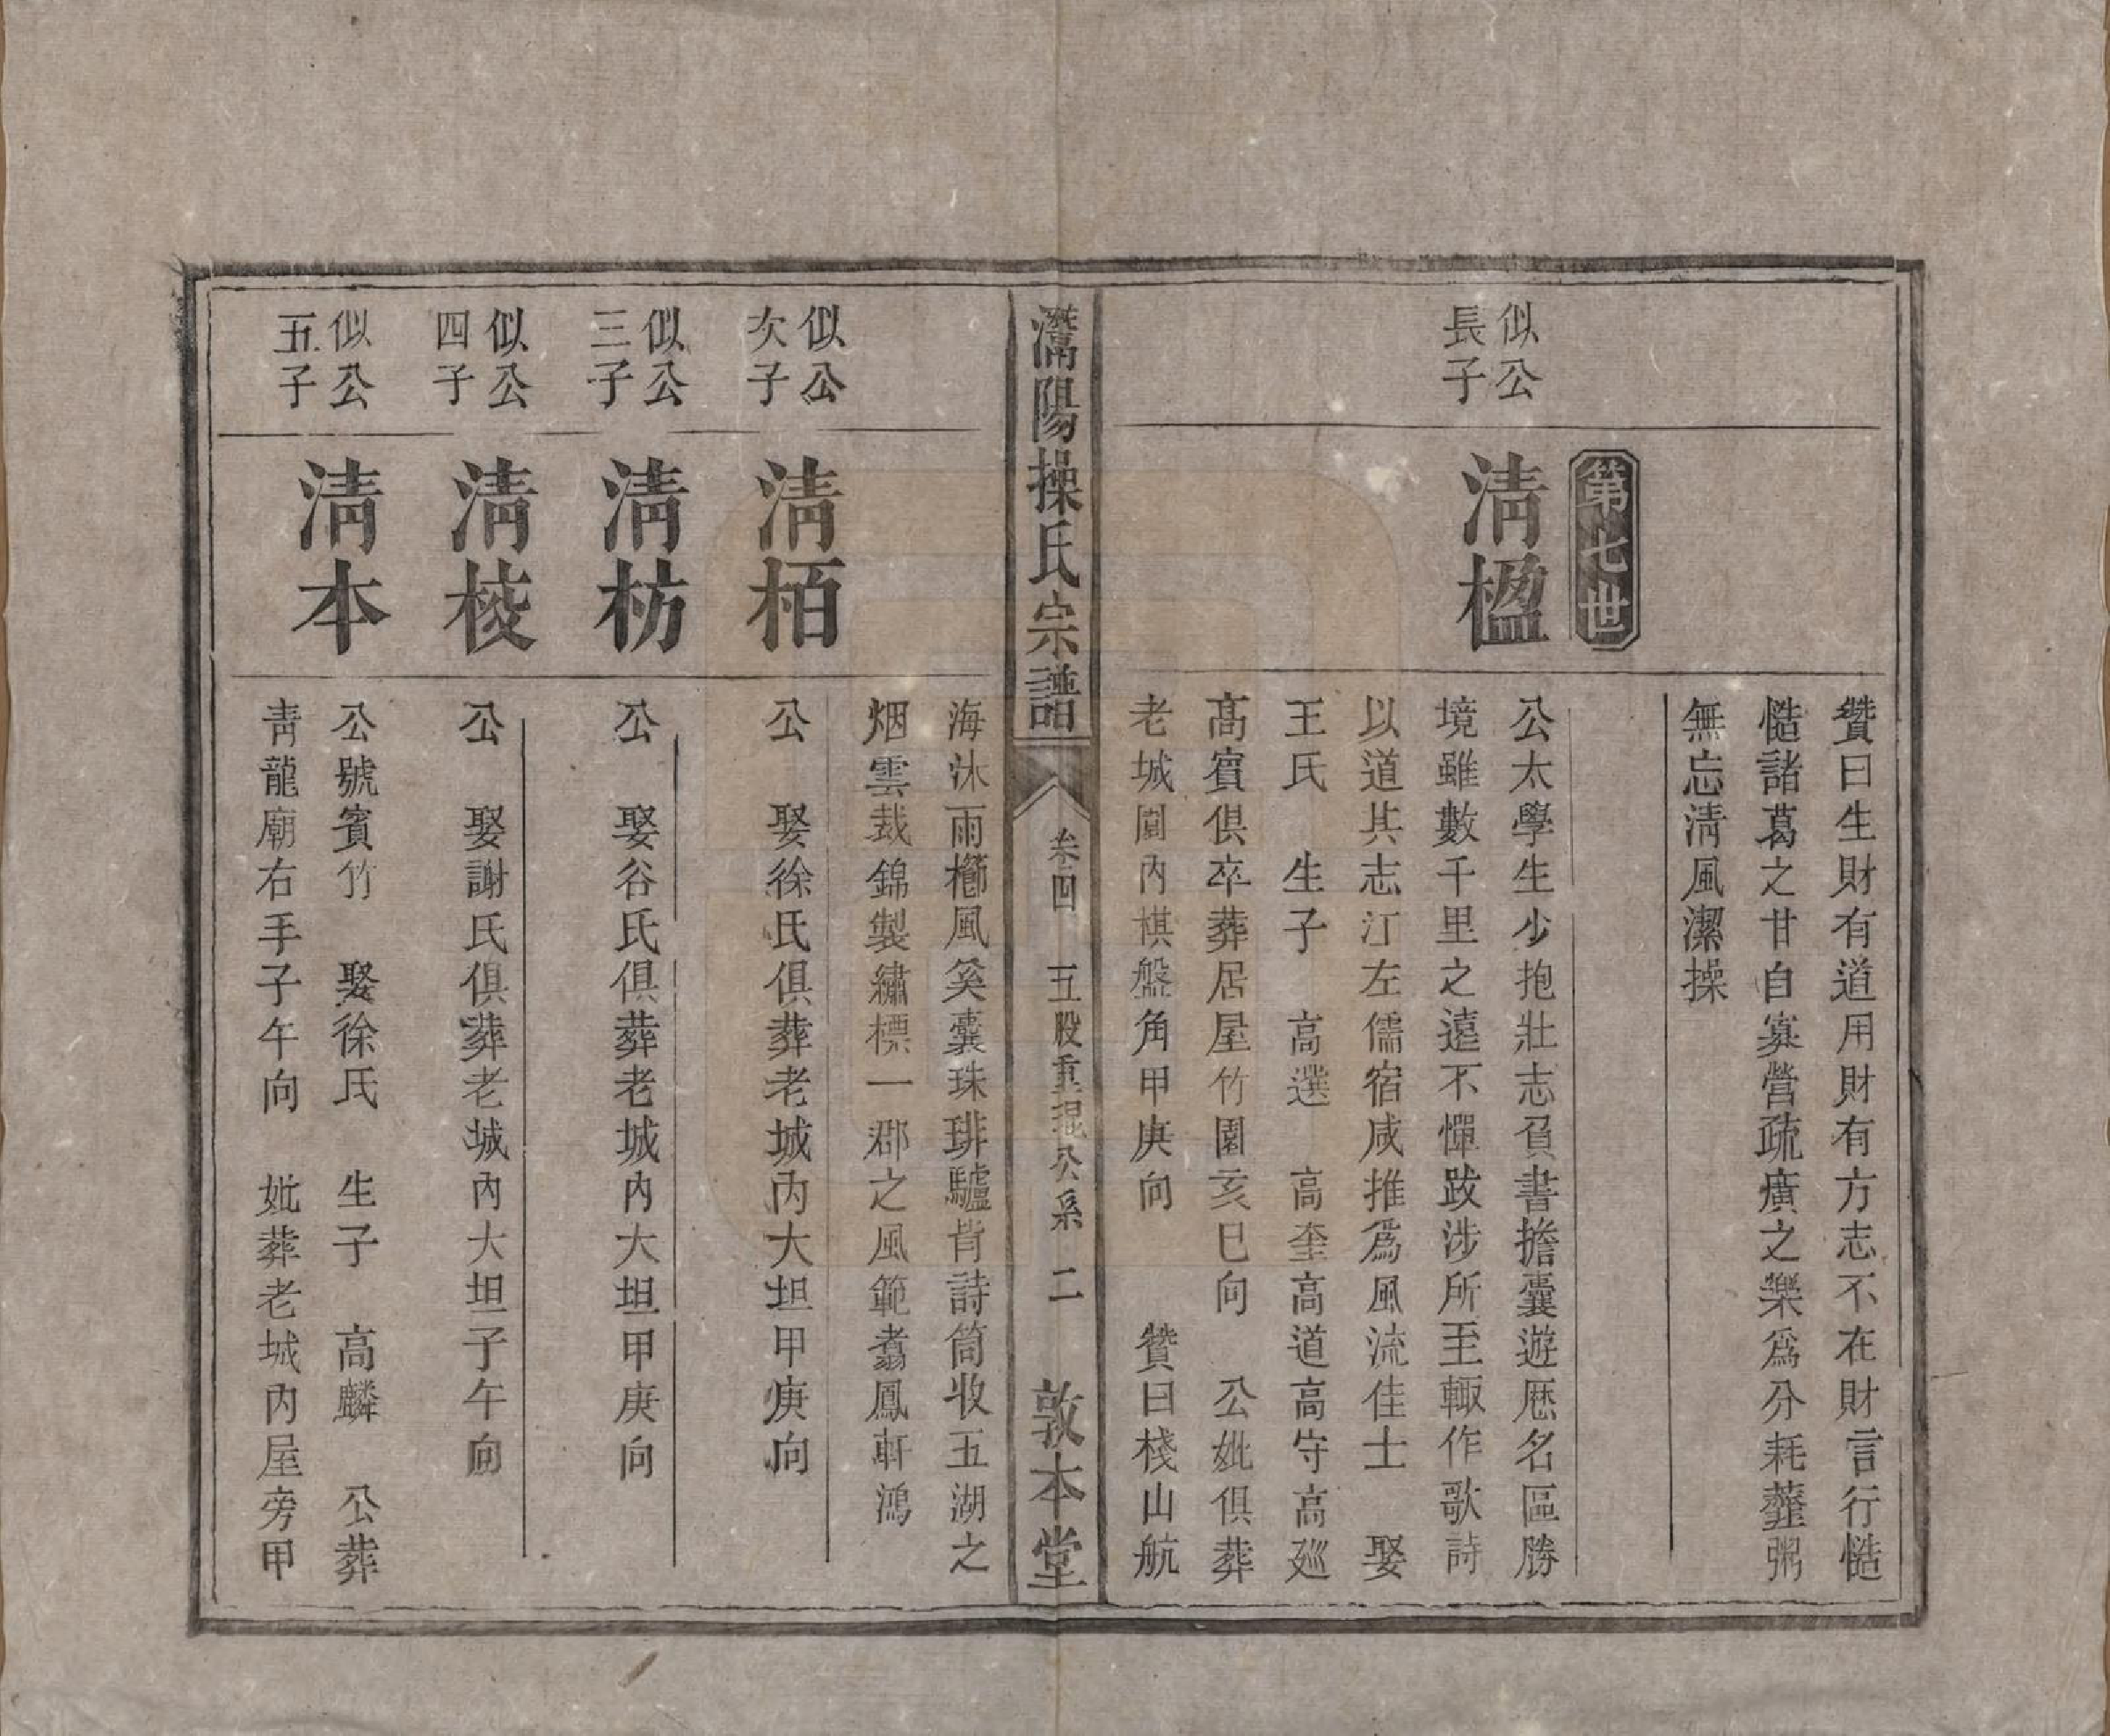 贊曰生財有道用財有方志不在財言行慥
慥諸葛之甘自寡營疏廣之樂爲分耗虀粥
無忘淸風潔操
第七世
似公
長子
淸楹
公太學生少抱壯志負書擔囊遊歷名區勝
境雖數千里之遠不憚跋涉所至輙作歌詩
以道其志江左儒宿咸推爲風流佳士　娶
王氏　生子　高選　高奎高道高守高廵
高賔俱卒葬居屋竹園亥巳向　公妣俱葬
老城園內棋盤角甲庚向　　贊曰棧山航
灊陽操氏宗譜
卷四　五股重琨公系　二
敦本堂
海沐雨櫛風奚囊珠琲驢背詩筒收五湖之
烟雲裁錦製繡標一郡之風範翥鳳軒鴻
似公
次子
淸栢
公　娶徐氏俱葬老城內大坦甲庚向
似公
三子
淸枋
公　娶谷氏俱葬老城內大坦甲庚向
似公
四子
淸棱
公　娶謝氏俱葬老城內大坦子午向
似公
五子
淸本
公號賓竹　娶徐氏　生子　高麟　公葬
靑龍廟右手子午向　妣葬老城內屋旁甲